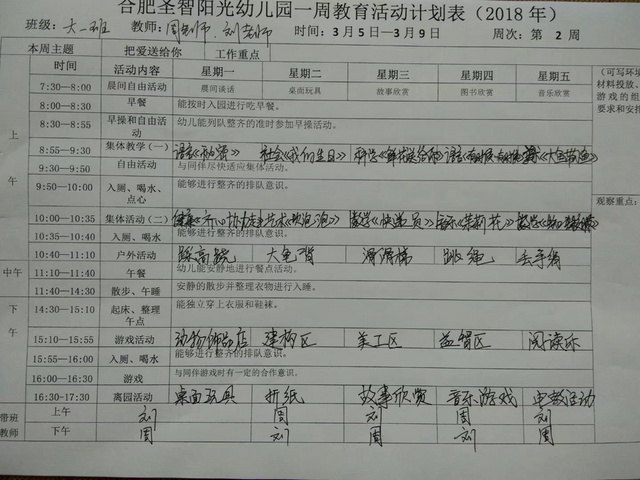 合肥圣智阳光幼儿园一周教育活动计划表（2018 年）
班级：大一班 教师：周老师、刘老师 时间：3 月 5 日—3 月 9 日 周次：第 2 周
本周主题 把爱送给你 工作重点
时间 活动内容 星期一 星期二 星期三 星期四 星期五
7:30—8:00 晨间自由活动 晨间谈话 桌面玩具 故事欣赏 图书欣赏 音乐欣赏
8:00—8:30 早餐 能按时入园进行吃早餐。
8:30—8:55 早操和自由活动 幼儿能列队整齐的准时参加早操活动。
上午
8:55—9:30 集体教学（一） 语言 社会《我们的生日》 语言
9:30—9:50 自由活动 与同伴尽快适应集体活动。
9:50—10:00 入厕、喝水、点心 能够进行整齐的排队意识。
10:00—10:35 集体活动（二） 健康 艺术 数学《快递员》 音乐《茉莉花》
10:35—10:40 入厕、喝水 能够进行整齐的排队意识。
10:40—11:10 户外活动 大龟背 滑滑梯 跳绳 丢手绢
中午
11:10—11:40 午餐 幼儿能安静地进行餐点活动。
11:40—14:30 散步、午睡 安静的散步并整理衣物进行入睡。
下午
14:30—15:10 起床、整理午点 能独立穿上衣服和鞋袜。
15:10—15:55 游戏活动 动物饰品店 建构区 美工区 益智区 阅读
15:55—16:00 入厕、喝水 能够进行整齐的排队意识。
16:00—16:30 游戏 与同伴游戏时有一定的合作意识。
16:30—17:30 离园活动 桌面玩具 折纸 故事欣赏 音乐游戏 活动
带班教师 上午 刘 周 刘 周 刘
下午 周 刘 周 刘 周
（可写环境
材料投放、
游戏的组
要求和安排
观察重点：